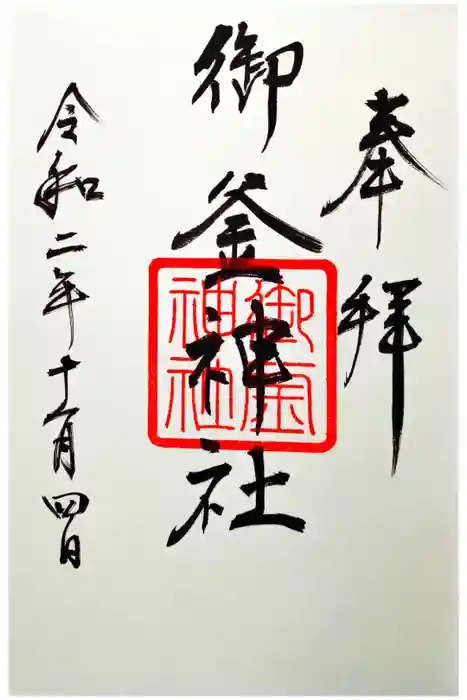 奉拝
御釜神社
御釜
神社
令和二年十一月四日